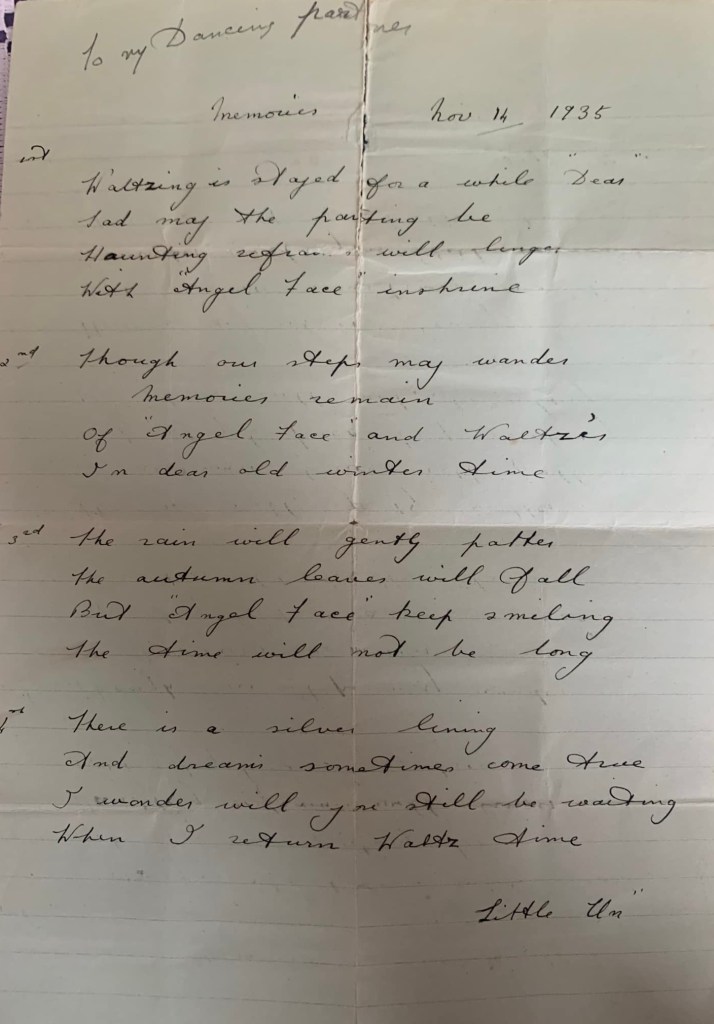 To my Dancing partner
Memories Nov 14 1935
1st
Waltzing is stayed for a while "Dear"
Sad may the parting be
Haunting refrains will linger
With "Angel Face" inshrine
2nd Though our steps may wander
Memories remain
Of "Angel Face" and Waltzes
In dear old winter time
3rd The rain will gently patter
The autumn leaves will fall
But "Angel Face" keep smiling
The time will not be long
4th There is a silver lining
And dreams sometimes come true
I wonder will you still be waiting
When I return Waltz time
Little Un"